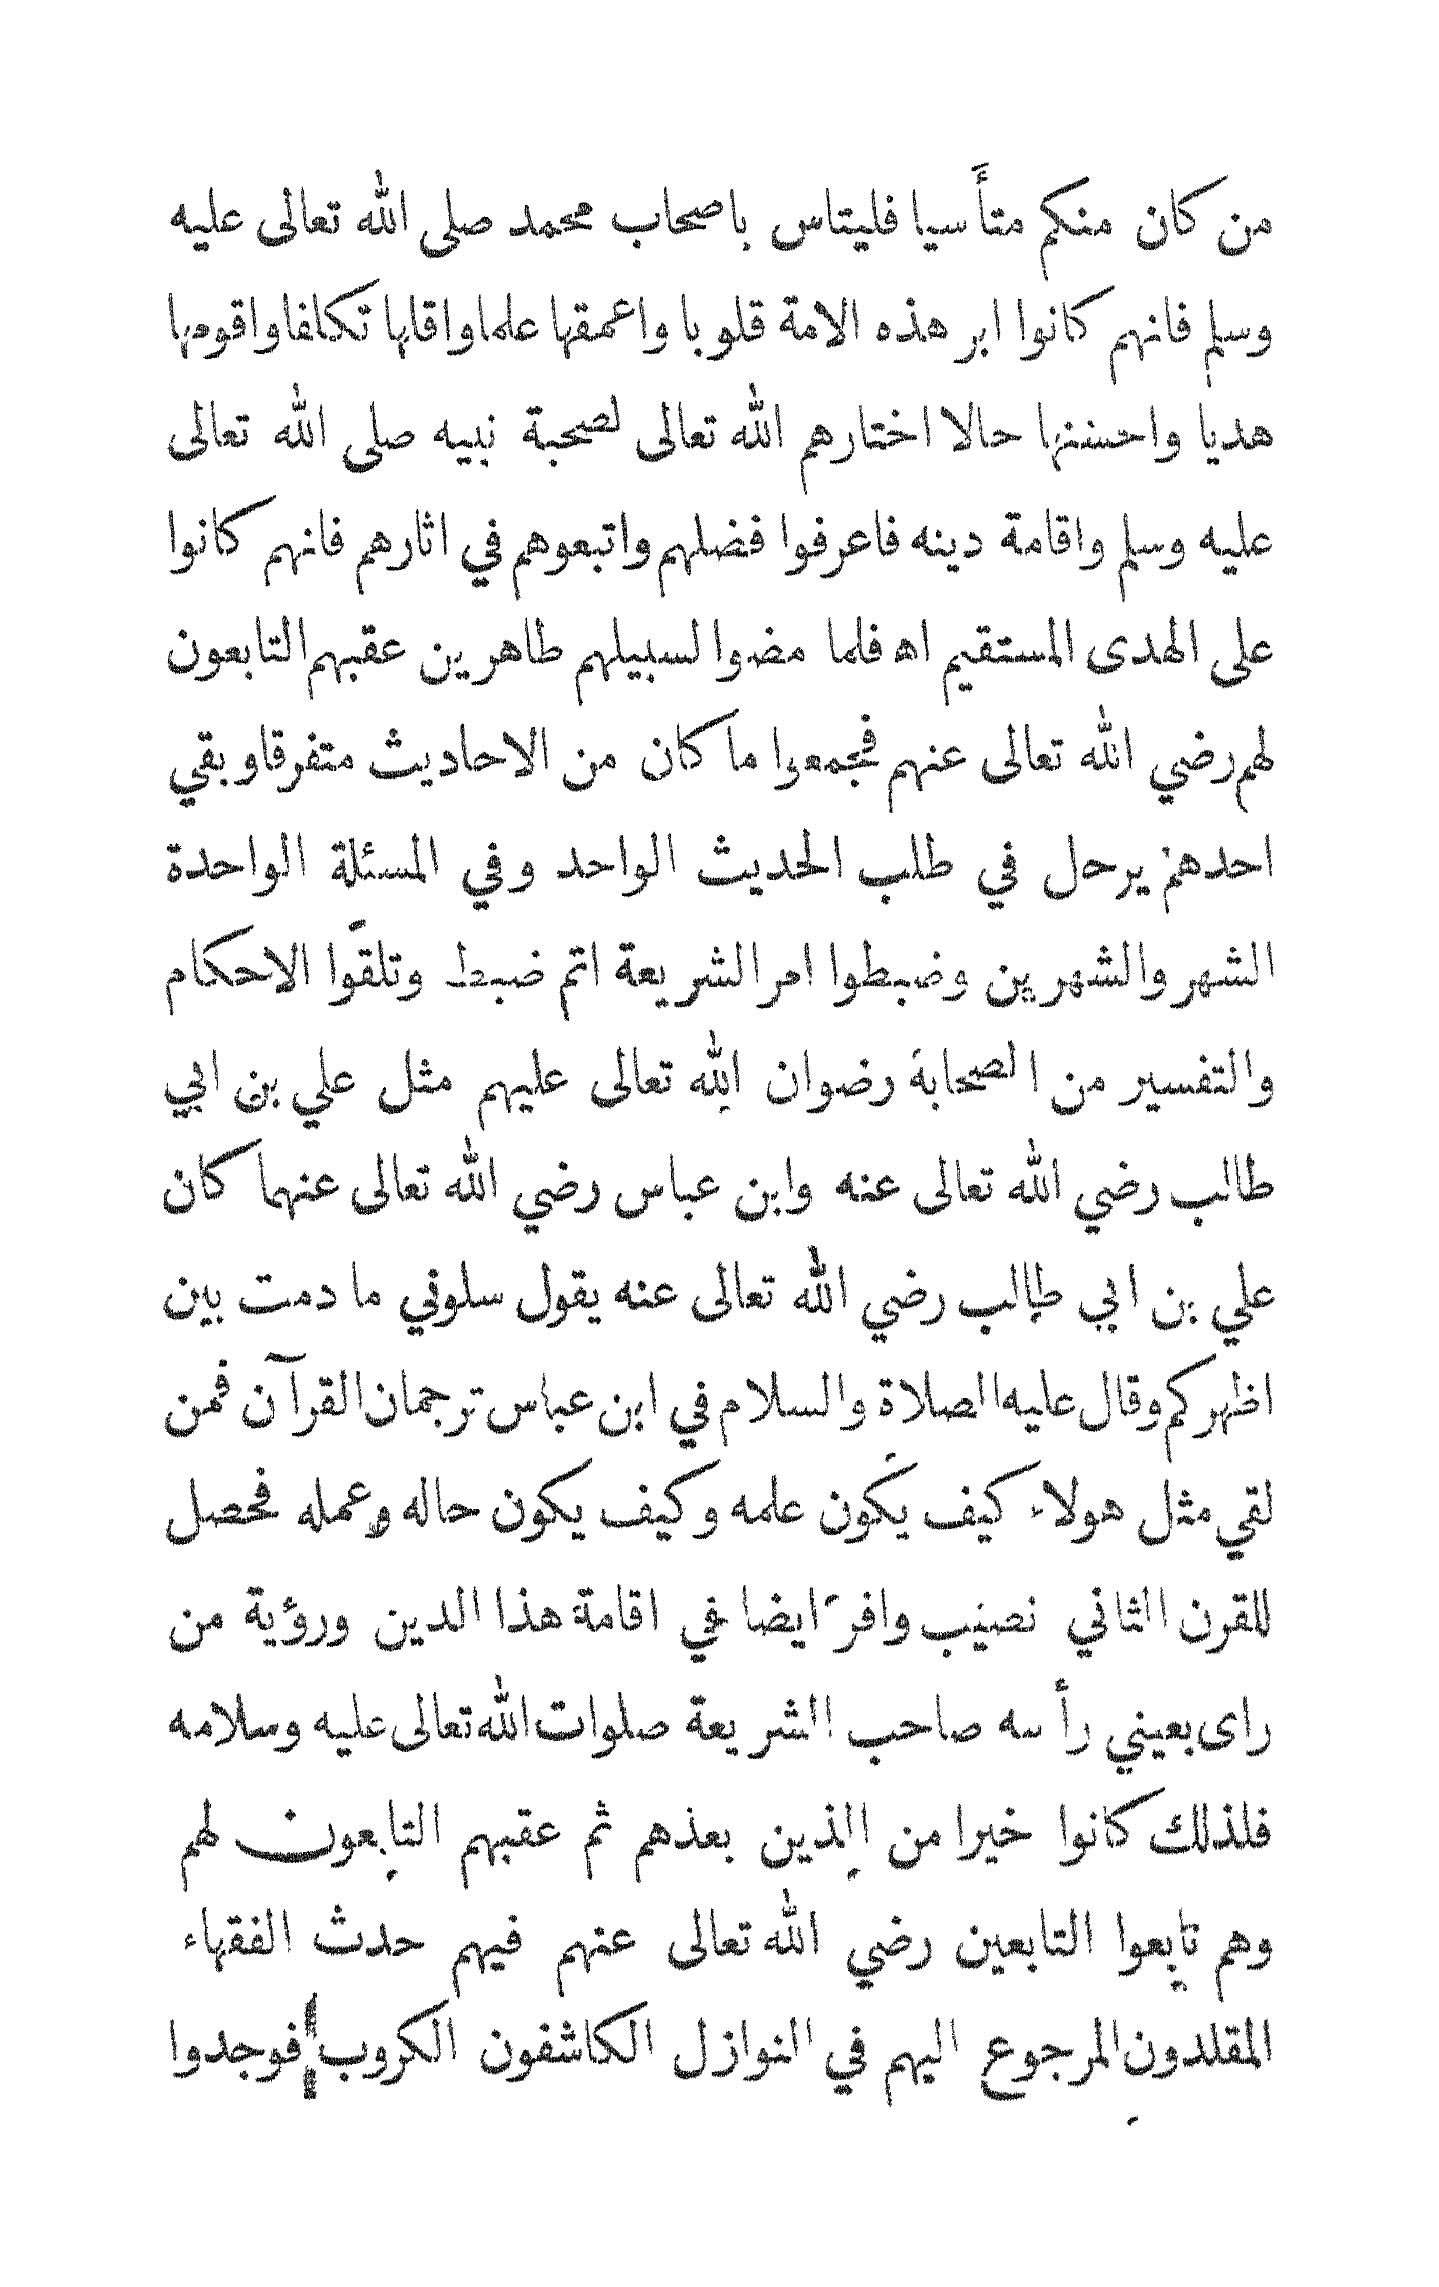 من كان منكم متأسيا فليتاس باصحاب محمد صلى الله تعالى عليه
وسلم فانهم كانوا ابر هذه الامة قلوبا واعمقها علما واقلها تكلفا واقومها
هديا واحسنها حالا اختارهم الله تعالى لصحبة نبيه صلى الله تعالى
عليه وسلم واقامة دينه فاعرفوا فضلهم واتبعوهم في اثارهم فانهم كانوا
على الهدى المستقيم اه فلما مضوا لسبيلهم طاهرين عقبهم التابعون
لهم رضي الله تعالى عنهم فجمعوا ما كان من الاحاديث متفرقا وبقي
احدهم يرحل في طلب الحديث الواحد وفي المسئلة الواحدة
الشهر والشهرين وضبطوا امر الشريعة اتم ضبط وتلقوا الاحكام
والتفسير من الصحابة رضوان الله تعالى عليهم مثل علي بن ابي
طالب رضي الله تعالى عنه وابن عباس رضي الله تعالى عنهما كان
علي بن ابي طالب رضي الله تعالى عنه يقول سلوني ما دمت بين
اظهركم وقال عليه الصلاة والسلام في ابن عباس ترجمان القرآن فمن
لقي مثل هولاء كيف يكون علمه وكيف يكون حاله وعمله فحصل
للقرن الثاني نصيب وافر ايضا في اقامة هذا الدين ورؤية من
راى بعيني رأسه صاحب الشريعة صلوات الله تعالى عليه وسلامه
فلذلك كانوا خيرا من الذين بعذهم ثم عقبهم التابعون لهم
وهم تابعوا التابعين رضي الله تعالى عنهم فيهم حدث الفقهاء
المقلدون المرجوع اليهم في النوازل الكاشفون الكروب فوجدوا